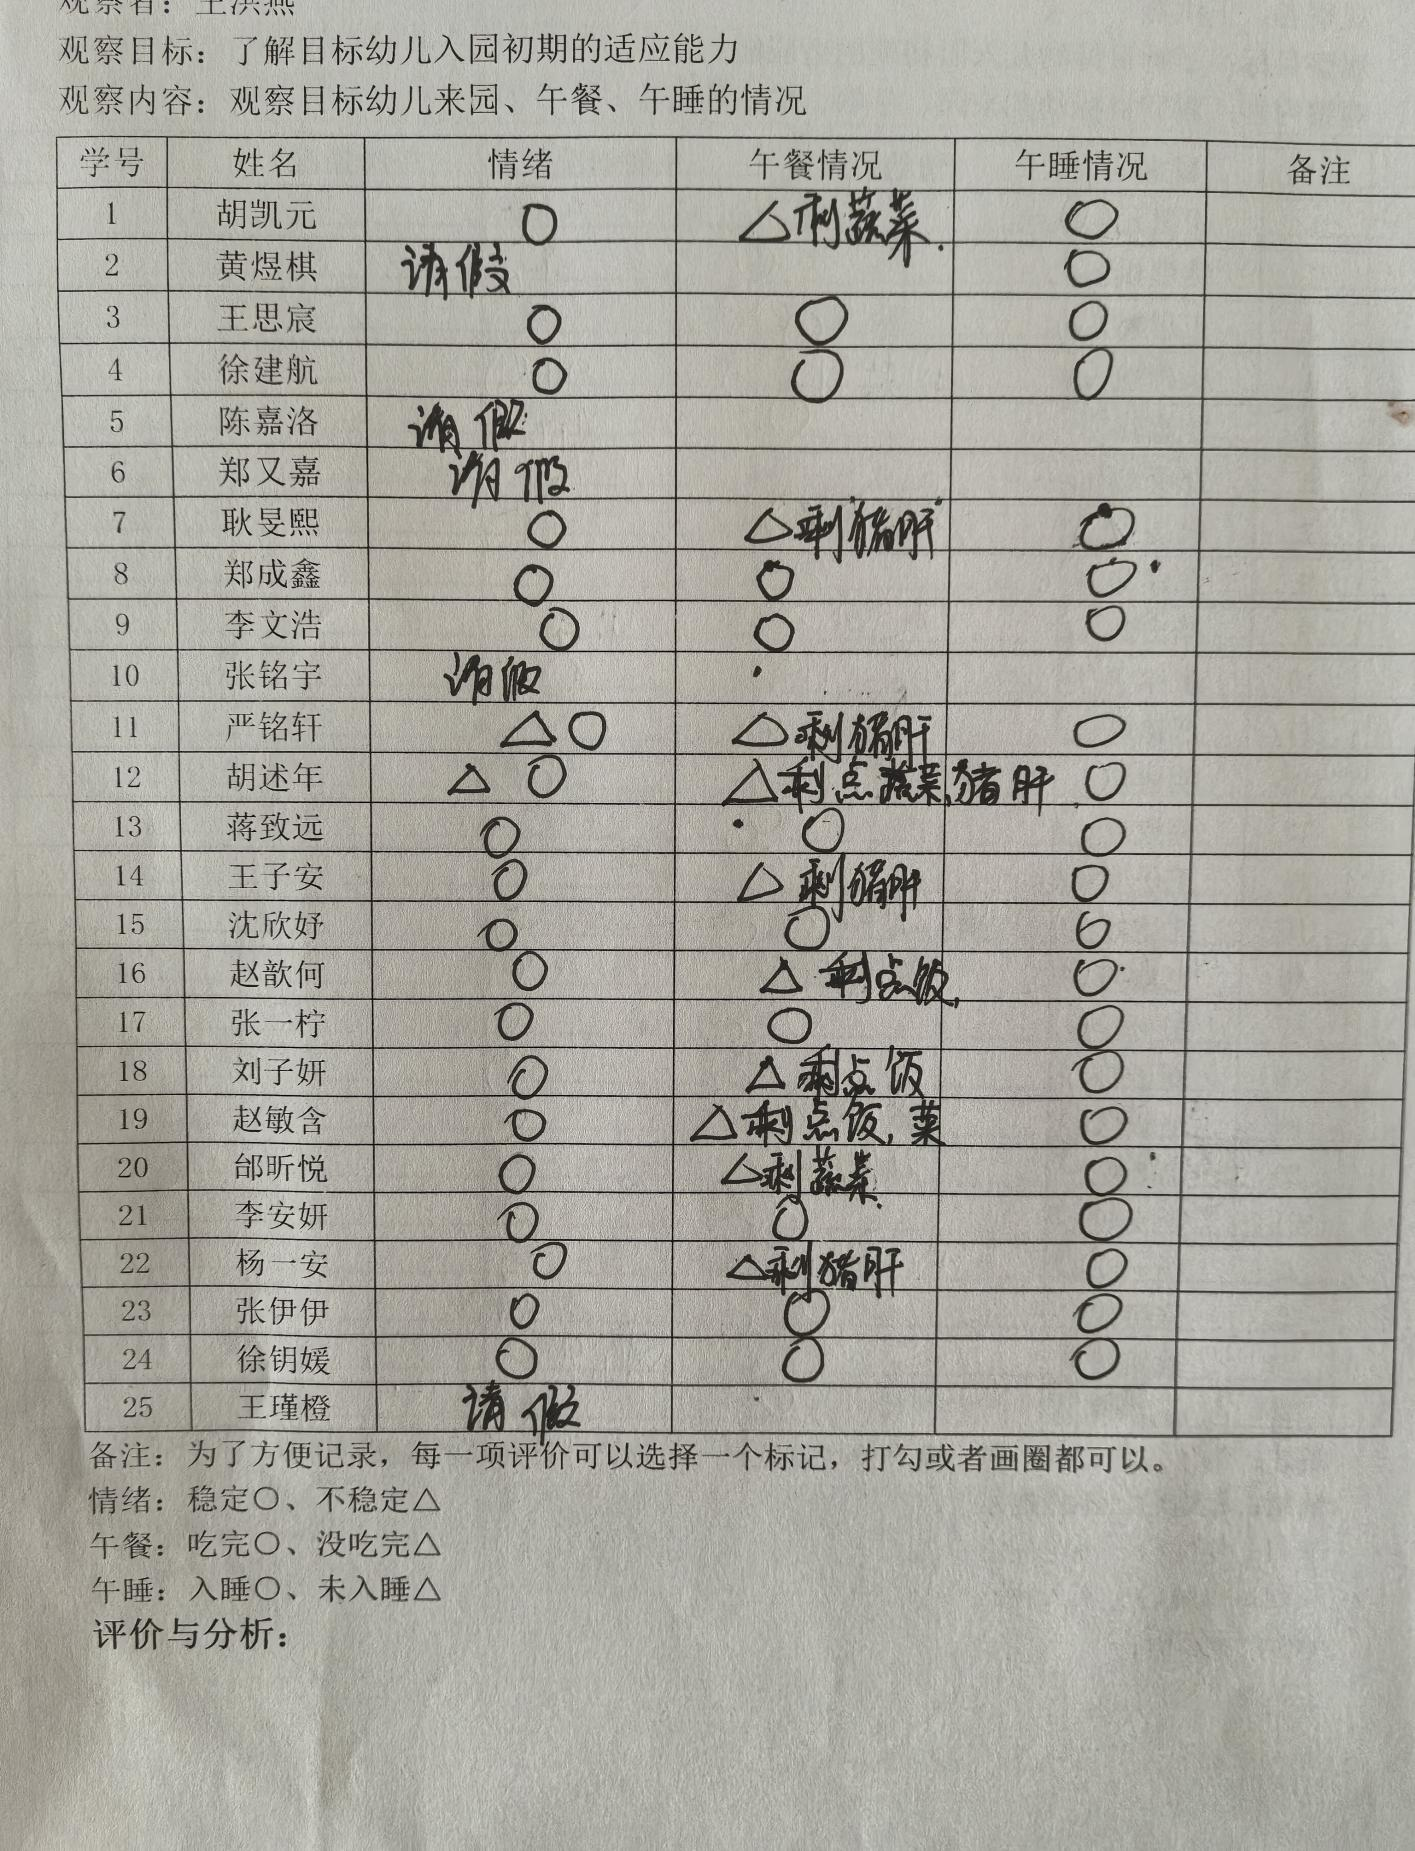 观察者：王洪燕
观察目标：了解目标幼儿入园初期的适应能力
观察内容：观察目标幼儿来园、午餐、午睡的情况
学号 姓名 情绪 午餐情况 午睡情况 备注
1 胡凯元 〇 △剩蔬菜. 〇
2 黄煜棋 请假 〇
3 王思宸 〇 〇 〇
4 徐建航 〇 〇 〇
5 陈嘉洛 请假
6 郑又嘉 请假
7 耿旻熙 〇 △剩猪肝 〇
8 郑成鑫 〇 〇 〇
9 李文浩 〇 〇 〇
10 张铭宇 请假
11 严铭轩 △〇 △剩猪肝 〇
12 胡述年 △〇 △剩点蔬菜,猪肝 〇
13 蒋致远 〇 〇 〇
14 王子安 〇 △剩猪肝 〇
15 沈欣妤 〇 〇 〇
16 赵歆何 〇 △剩点饭, 〇
17 张一柠 〇 〇 〇
18 刘子妍 〇 △剩点饭 〇
19 赵敏含 〇 △剩点饭,菜 〇
20 邰昕悦 〇 △剩蔬菜. 〇
21 李安妍 〇 〇 〇
22 杨一安 〇 △剩猪肝 〇
23 张伊伊 〇 〇 〇
24 徐钥媛 〇 〇 〇
25 王瑾橙 请假
备注：为了方便记录，每一项评价可以选择一个标记，打勾或者画圈都可以。
情绪：稳定〇、不稳定△
午餐：吃完〇、没吃完△
午睡：入睡〇、未入睡△
评价与分析：